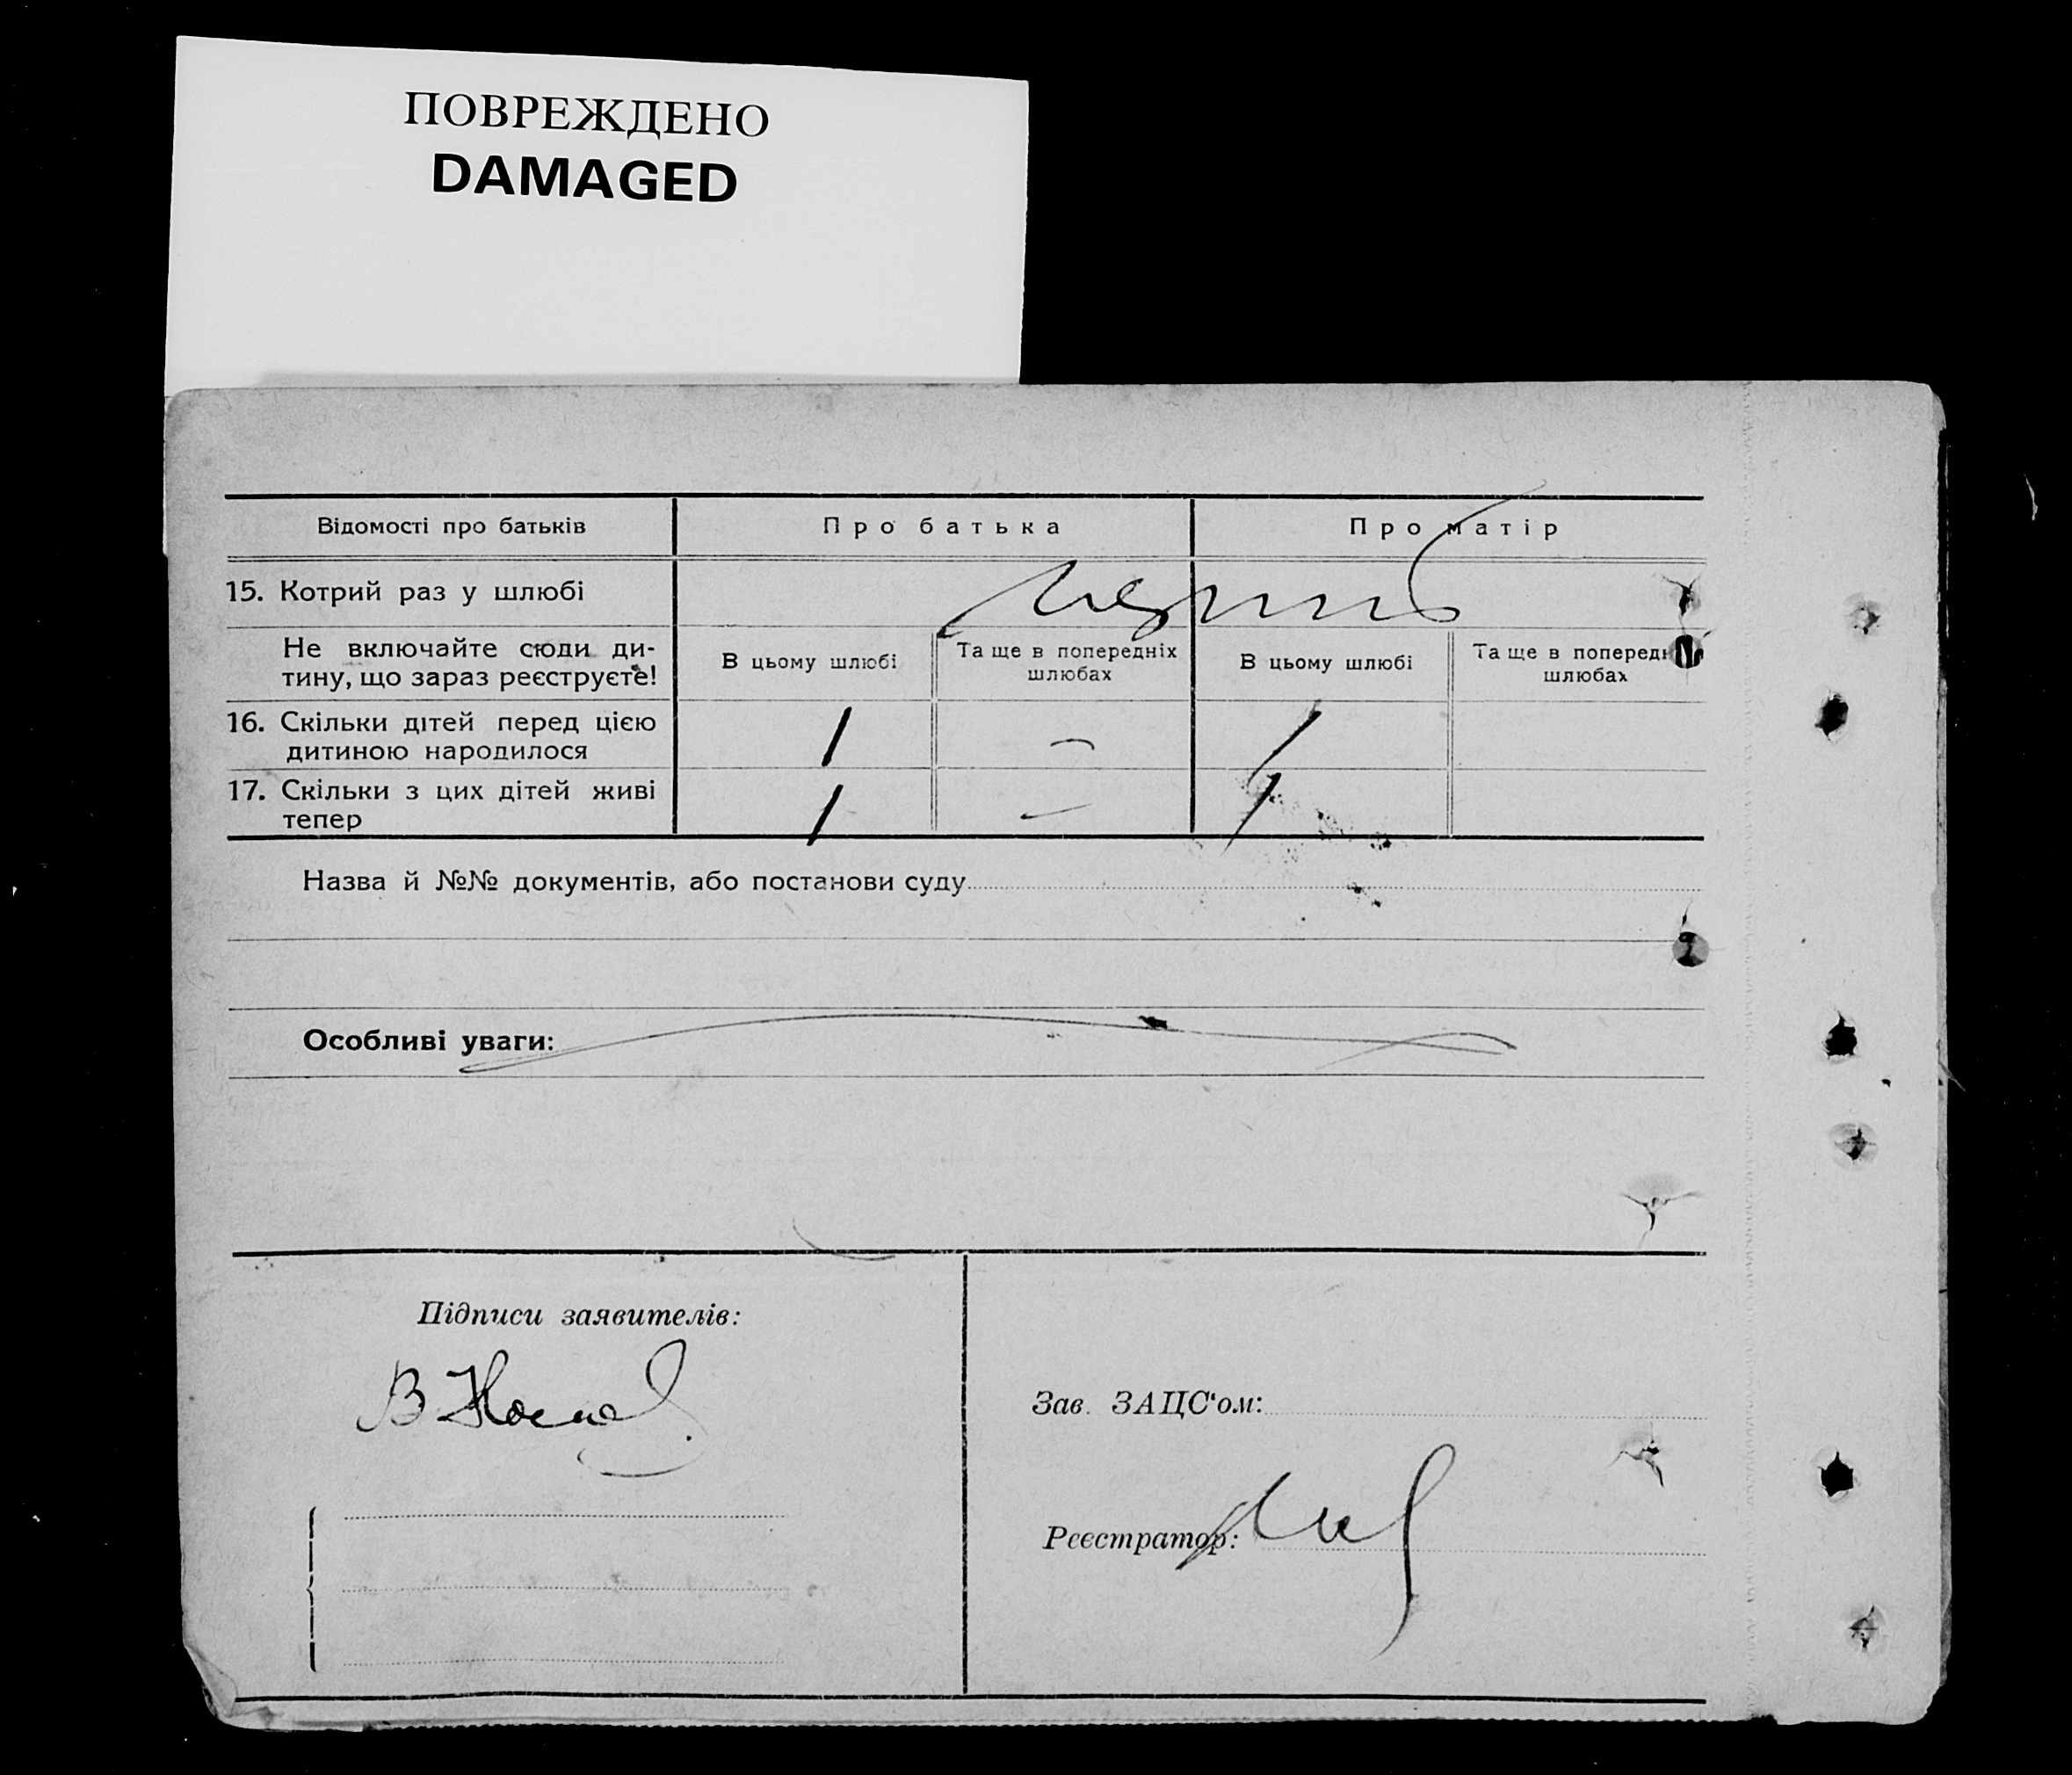 ПОВРЕЖДЕНО
DAMAGED
Відомості про батьків
Про батька
Про матір
15. Котрий раз у шлюбі
Не включайте сюди ди-
тину, що зараз реєструєте!
В цьому шлюбі
Та ще в попередніх
шлюбах
В цьому шлюбі
Та ще в
шлюбах
16. Скільки дітей перед цією
дитиною народилося
1
–
1
17. Скільки з цих дітей живі
тепер
1
–
1
Назва й №№ документів, або постанови суду
Особливі уваги:
Підписи заявителів:
Зав. ЗАЦС'ом:
Реєстратор: